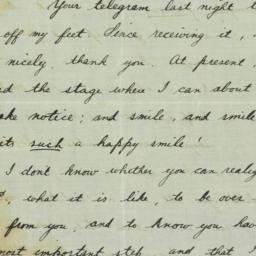 Your telegram last night
off my feet. Since receiving it,
nicely, thank you. At present,
the stage where I can about
notice; and smile, and smile
such a happy smile!
I don't know whether you can
what it is like, to be over-
from you, and to know you have
most important step and that